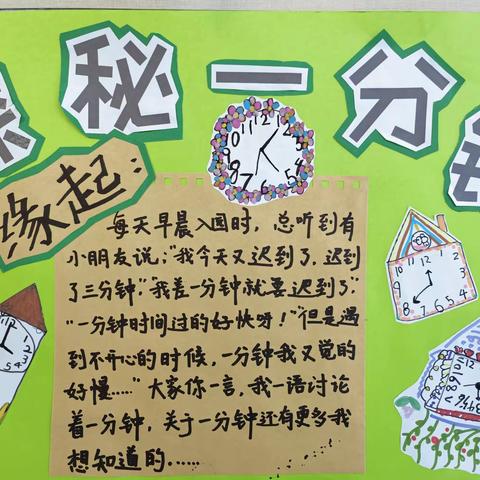 探秘一分钟
缘起:
每天早晨入园时，总听到有
小朋友说："我今天又迟到了，迟到
了三分钟"，"我差一分钟就要迟到了"
"一分钟时间过的好快呀！""但是遇
到不开心的时候，一分钟我又觉的
好慢……"大家你一言，我一语讨论
着一分钟，关于一分钟还有更多我
想知道的……